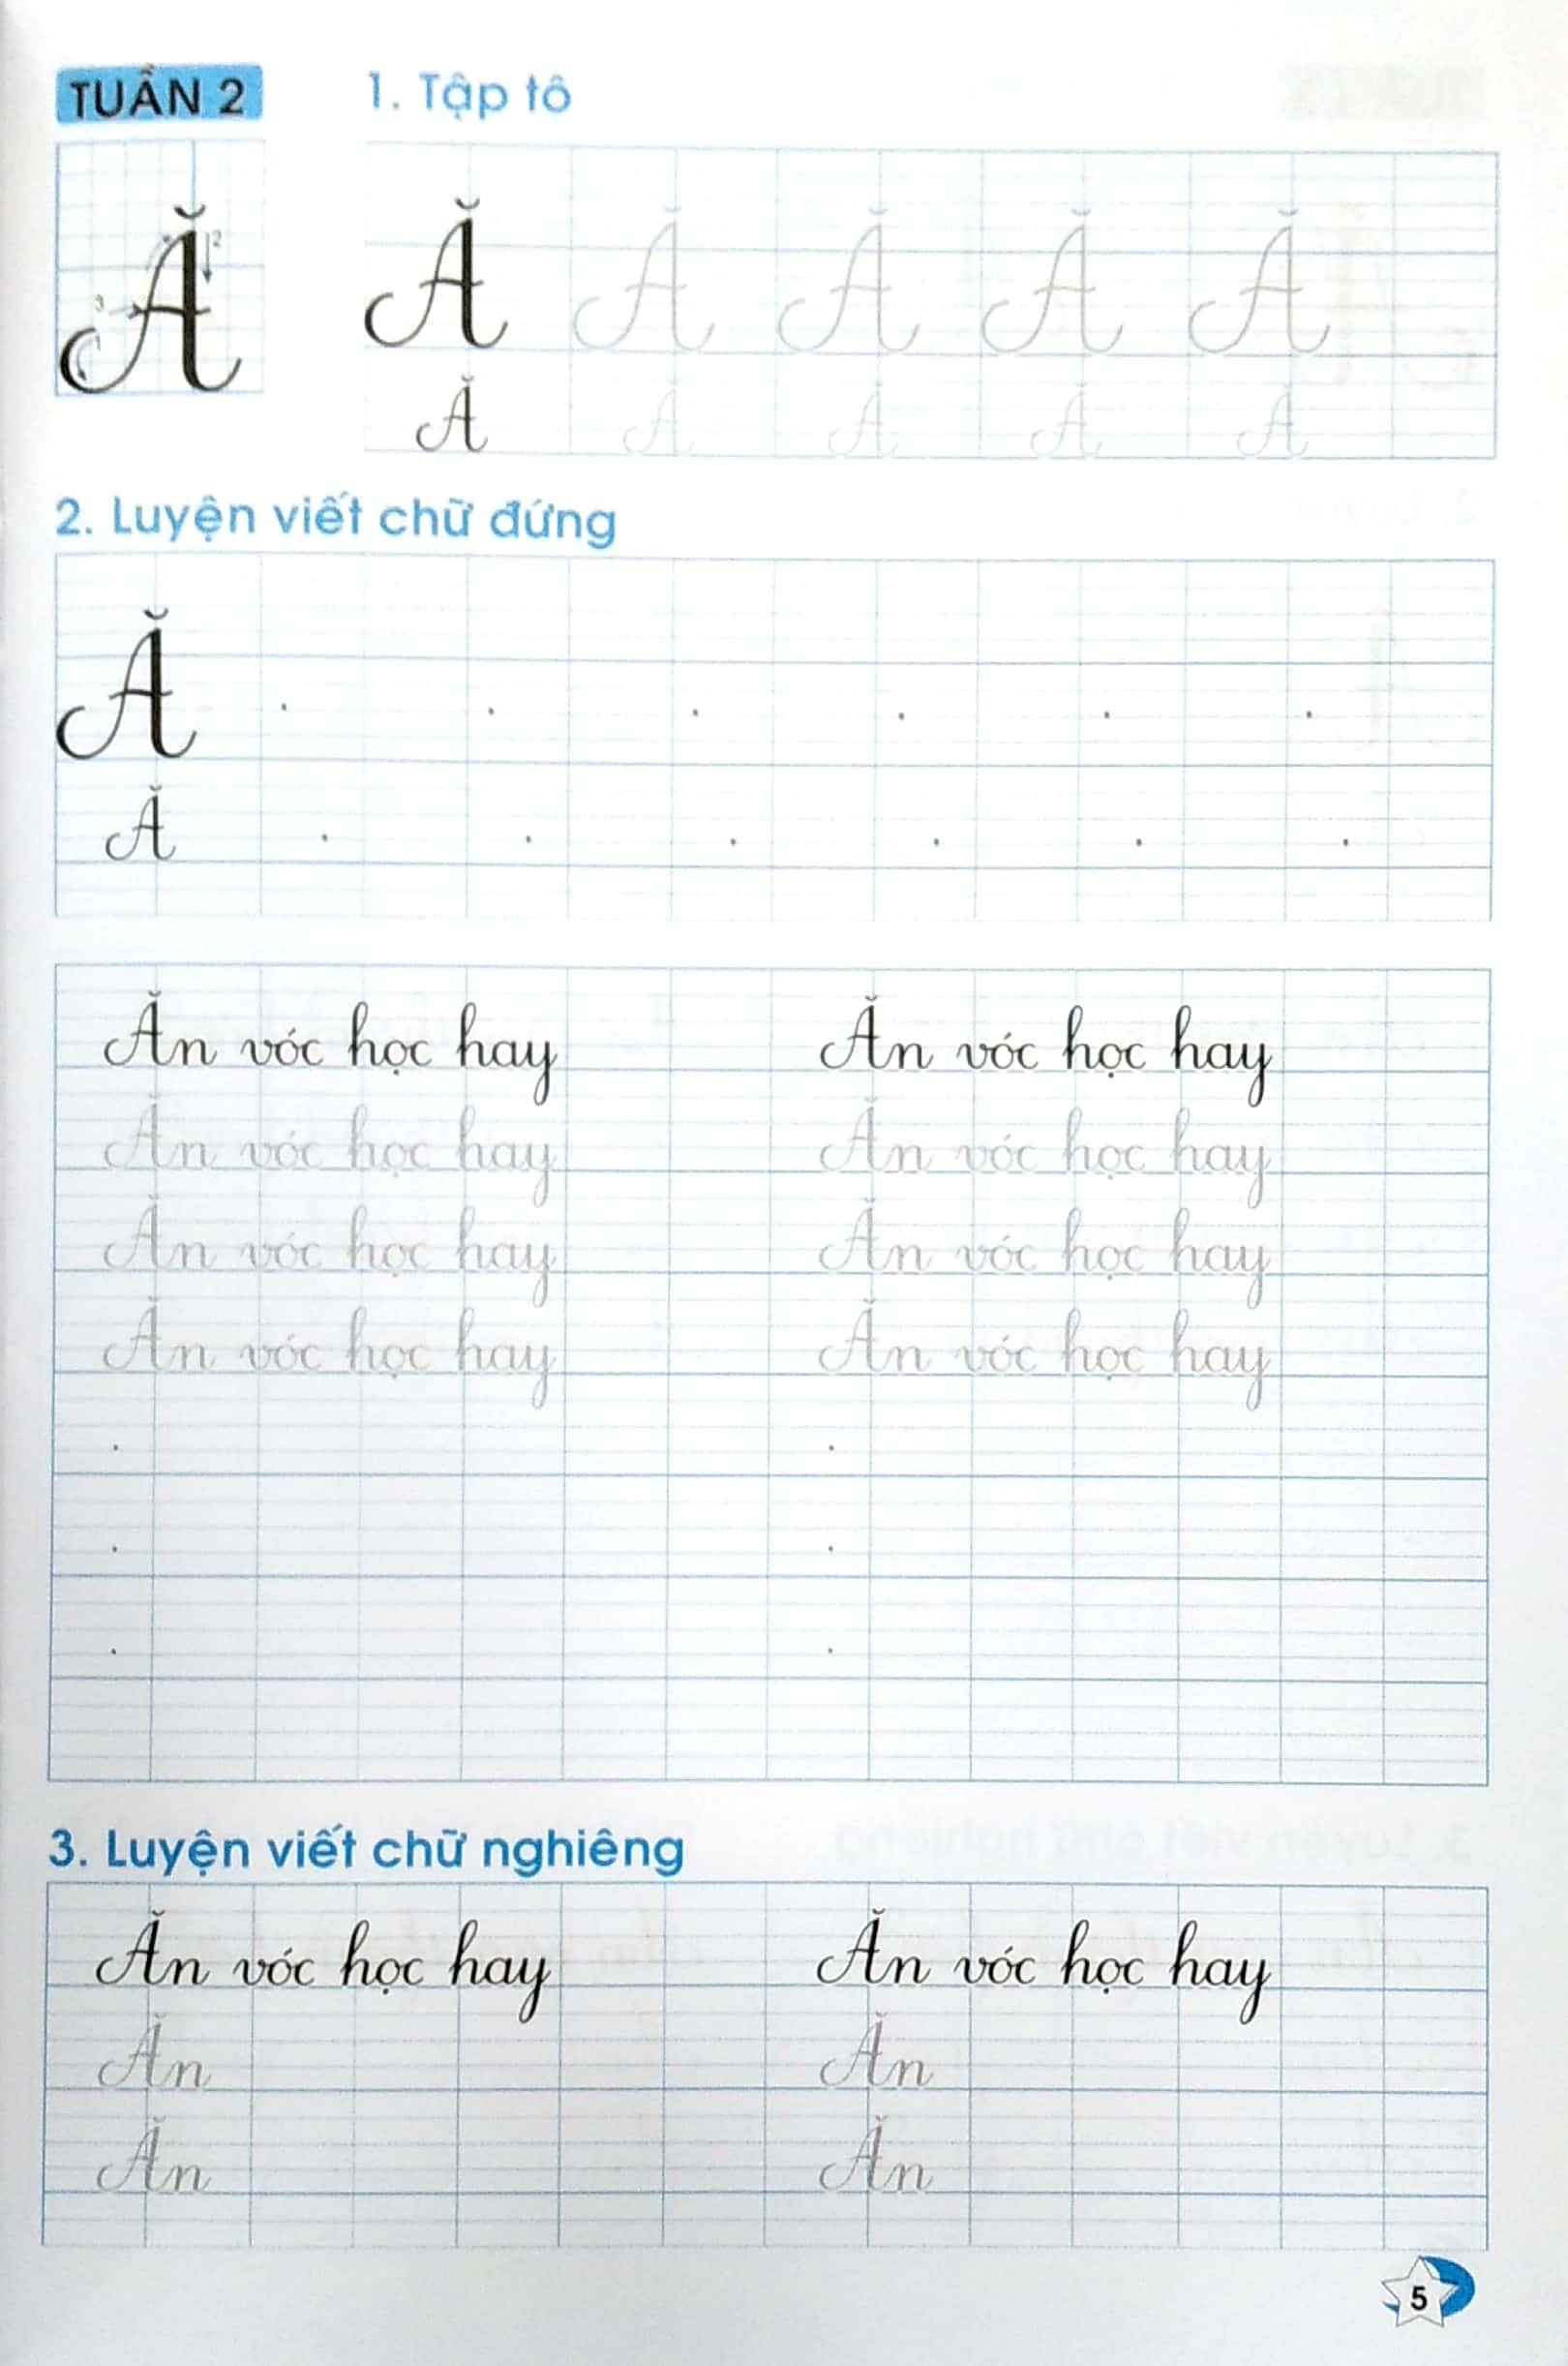 TUẦN 2 1. Tập tô
Ă Ă Ă Ă Ă Ă
Ă Ă Ă Ă Ă
2. Luyện viết chữ đứng
Ă
Ă
Ăn vóc học hay Ăn vóc học hay
Ăn vóc học hay Ăn vóc học hay
Ăn vóc học hay Ăn vóc học hay
Ăn vóc học hay Ăn vóc học hay
3. Luyện viết chữ nghiêng
Ăn vóc học hay Ăn vóc học hay
Ăn Ăn
Ăn Ăn
5